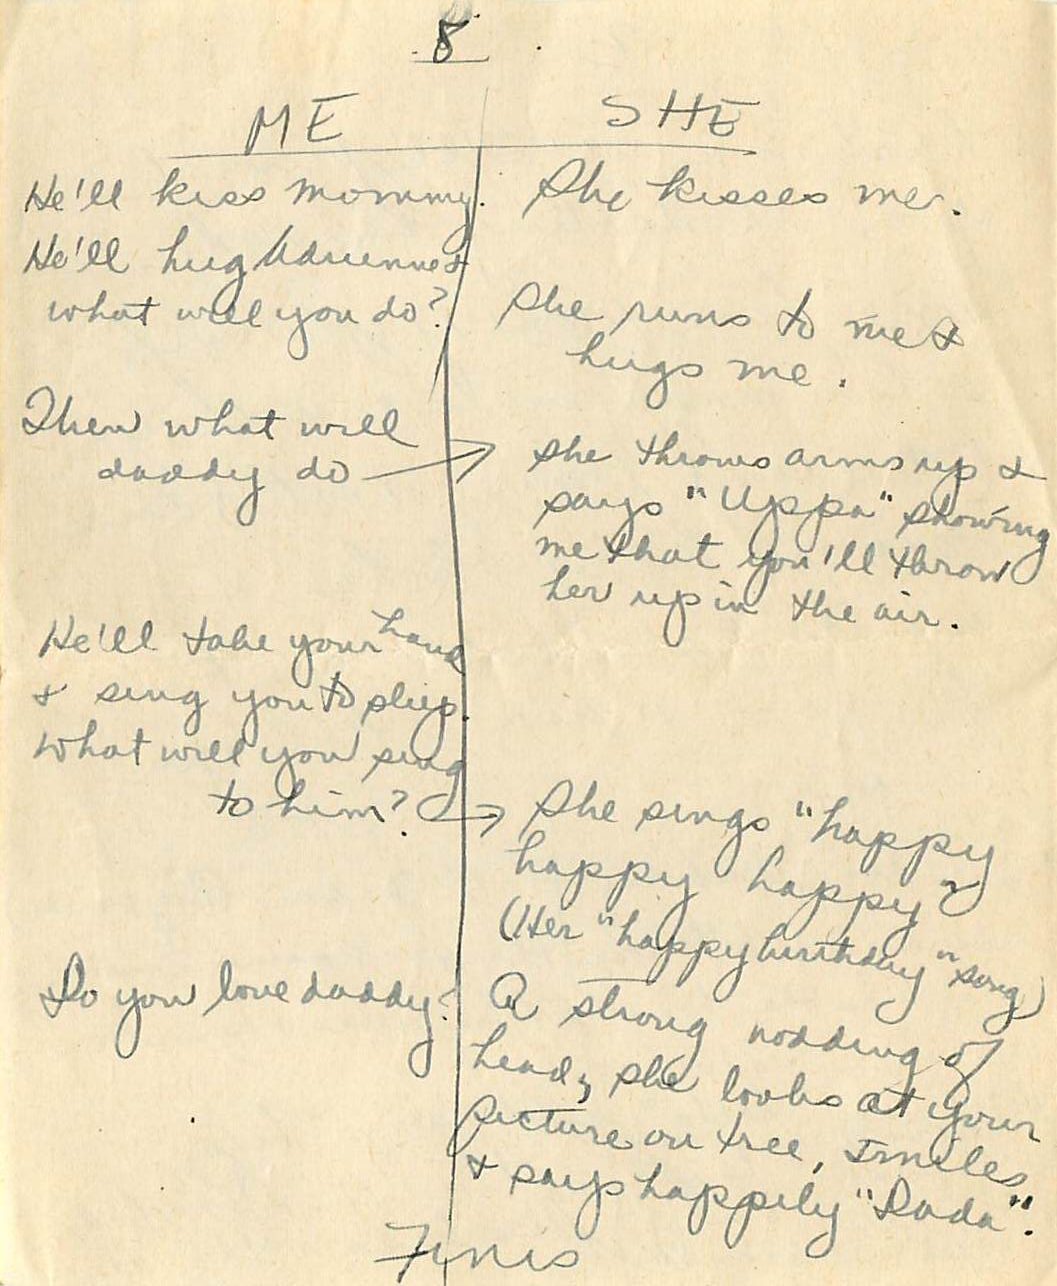 8
ME
SHE
He'll kiss mommy.
She kisses me.
He'll hug Adrienne &
what will you do?
She runs to me &
hugs me.
Then what will
daddy do
she throws arms up &
says "Uppa" showing
me that you'll throw
her up in the air.
He'll take your hand
& sing you to sleep.
What will you sing
to him?
She sings "happy
happy happy"
(Her "happy birthday" song)
Do you love daddy?
A strong nodding of
head, she looks at your
picture on tree, smiles
& says happily "Dada".
Finis